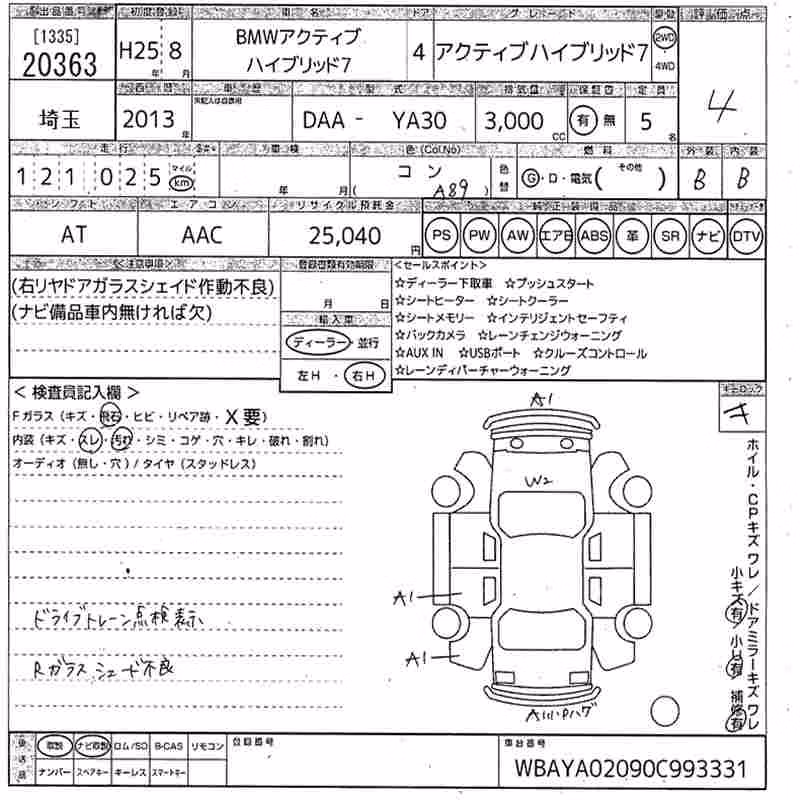 出品番号 初度登録 車名 ドア グレード 駆動 評価点
[1335]
20363
H25 年 8 月
BMWアクティブ
ハイブリッド7
4
アクティブハイブリッド7
2WD
4WD
4
埼玉
西暦 車歴 型式 排気量 保証書 定員
2013 年
未記入は自家用
DAA - YA30
3,000 CC
有 無
5 名
走行 車検 色(Col.No) 燃料 外装 内装
121025 マイル km
年 月
コン
( A89 )
色替
G・D・電気( その他 )
B B
シフト エアコン リサイクル預託金 純正装備品
AT AAC 25,040 円
PS PW AW エアB ABS 革 SR ナビ DTV
<注意事項>
(右リヤドアガラスシェイド作動不良)
(ナビ備品車内無ければ欠)
登録書類有効期限
月 日
輸入車
ディーラー・並行
左H ・ 右H
<セールスポイント>
☆ディーラー下取車 ☆プッシュスタート
☆シートヒーター ☆シートクーラー
☆シートメモリー ☆インテリジェントセーフティ
☆バックカメラ ☆レーンチェンジウォーニング
☆AUX IN ☆USBポート ☆クルーズコントロール
☆レーンディパーチャーウォーニング
<検査員記入欄>
Fガラス(キズ・飛石・ヒビ・リペア跡・X要)
内装(キズ・スレ・汚れ・シミ・コゲ・穴・キレ・破れ・割れ)
オーディオ(無し・穴)/タイヤ(スタッドレス)
ドライブトレーン点検表示
Rガラスシェード不良
A1
W2
A1
A1
キーロック
キ
ホイル・CPキズワレ/ドアミラーキズワレ
小キズ有/小凹有/補修有
発送品
取説 ナビ取説 ロム/SD B-CAS リモコン
ナンバー スペアキー キーレス スマートキー
登録番号
車台番号
WBAYA02090C993331